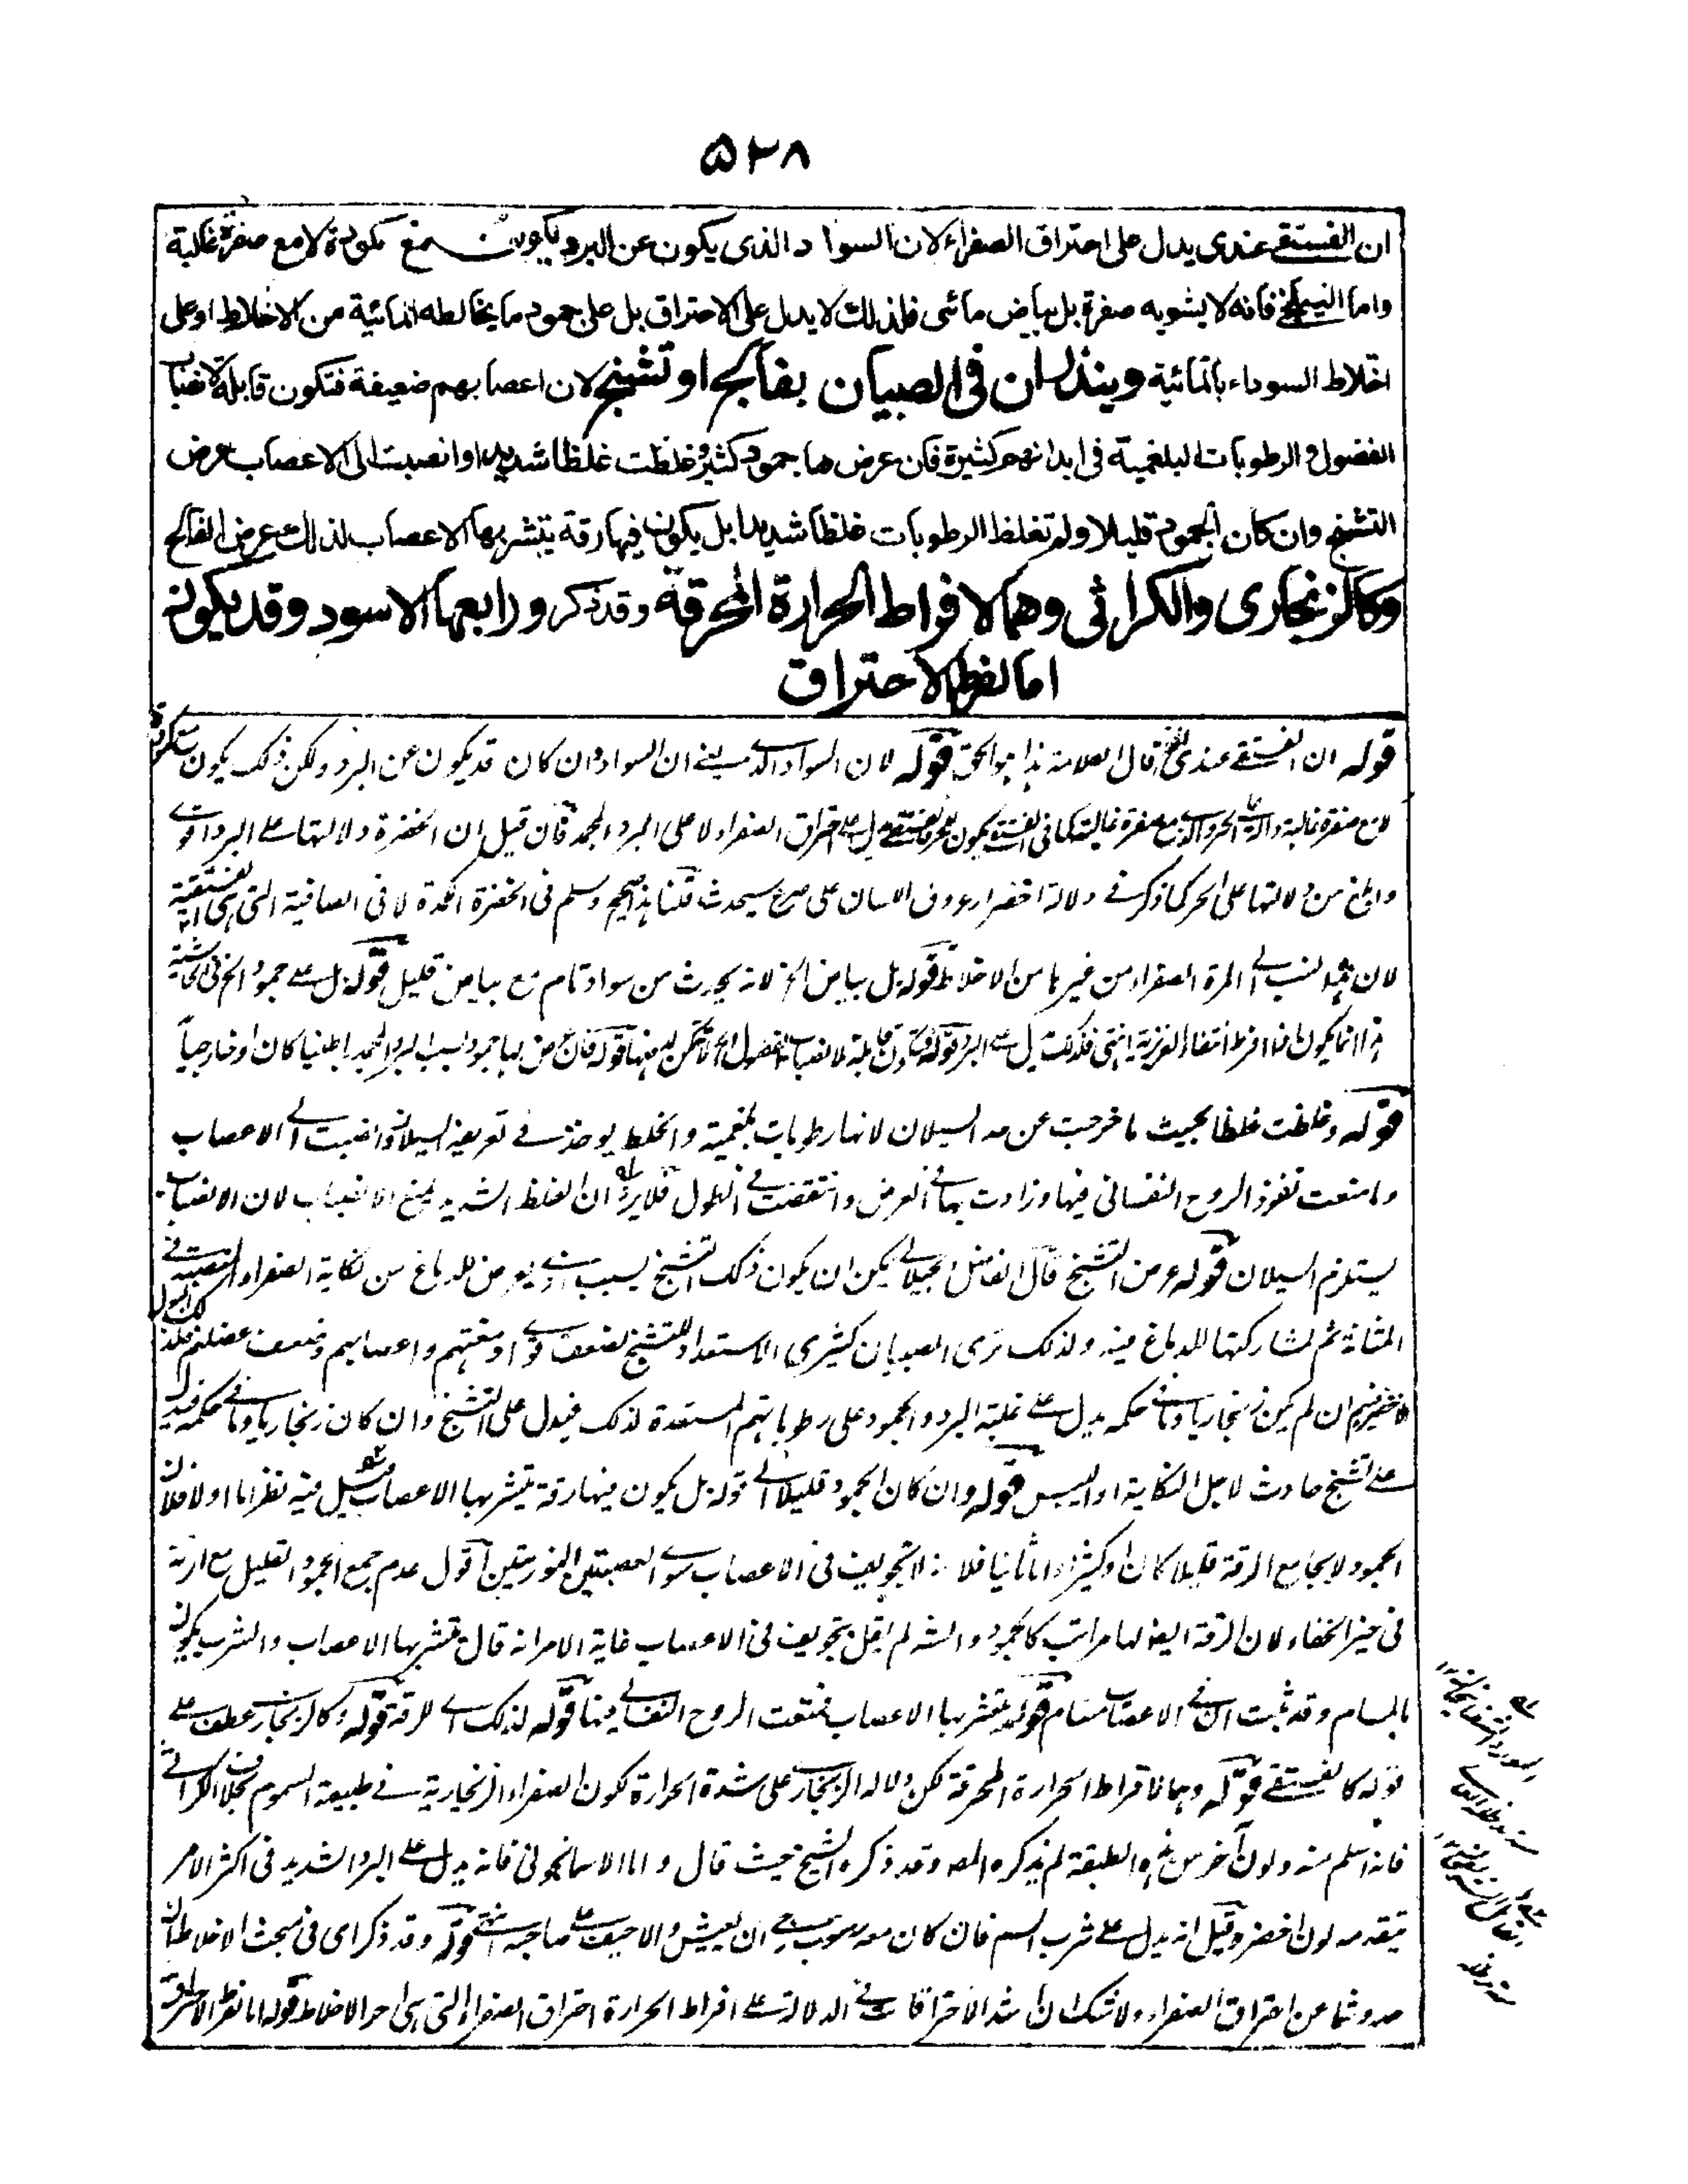 ۵۲۸
ان الفستقى عندى يدل على احتراق الصفراء لان السواد الذى يكون عن البرد يكون مع كمودة لا مع صفرة غالبة
واما النيلنجى فانه لا يشوبه صفرة بل بياض مائى فلذلك لا يدل على الاحتراق بل على جمود ما يخالطه المائية من الاخلاط او على
اختلاط السوداء بالمائية وينذران فى الصبيان بفالج او تشنج لان اعصابهم ضعيفة فتكون قابلة لانصباب
الفضول والرطوبات البلغمية فى ابدانهم كثيرة فان عرض لها جمود كثير وغلظت غلظا شديدا وانصبت الى الاعصاب عرض
التشنج وان كان الجمود قليلا ولم تغلظ الرطوبات غلظا شديدا بل يكون فيها رقة يتشربها الاعصاب لذلك عرض الفالج
وكالزنجارى والكراثى وهما لافراط الحرارة المحرقة وقد ذكر ورابعها الاسود وقد يكون
اما لفرط الاحتراق
قوله ان الفستقى عندى الخ قال العلامة هذا هو الحق قوله لان السواد الذى يعنى ان السواد وان كان قد يكون عن البرد ولكن ذلك يكون مع كمودة
لا مع صفرة غالبة والدال على الحر هو الذى مع صفرة غالبة كما فى الفستقى يدل على احتراق الصفراء لا على البرد المجمد فان قيل ان الخضرة دلالتها على البرد اقوى
وابلغ من دلالتها على الحر كما ذكر فى دلالة اخضرار عروق اللسان على صرع سيحدث قلنا هذا صحيح وسلم فى الخضرة الكمدة لا فى الصافية التى هى الفستقية
لان هذه انسب الى المرة الصفراء من غيرها من الاخلاط قوله بل بياض الخ لانه يحدث من سواد تام مع بياض قليل قوله بل على جمود الخ فى الحاشية
هذا انما يكون اذا افرط انتفاء الغريزية انتهى فلذلك يدل على البرد قوله فتكون قابلة لانصباب الفضول قوله فان عرض لها جمود بسبب البرد المجمد داخليا كان او خارجيا
قوله وغلظت غلظا بحيث ما خرجت عن حد السيلان لانها رطوبات بلغمية والخلط يوخذ فى تعريفه السيلان وانصبت الى الاعصاب
وامنعت نفوذ الروح النفسانى فيها وزادت بها فى العرض وانتقضت فى الطول فلا يرد ان الغلظ الشديد يمنع الانصباب لان الانصباب
يستلزم السيلان قوله عرض التشنج قال الفاضل الجيلانى يمكن ان يكون ذلك التشنج بسبب اذى يعرض للدماغ من نكاية الصفراء المنصبة فى
المثانة ثم لمشاركتها للدماغ فيه ولذلك ترى الصبيان كثيرى الاستعداد للتشنج لضعف قوى ادمغتهم واعصابهم وضعف عضلهم
فاخضر فيهم ان لم يكن زنجاريا وما فى حكمه يدل على غلبة البرد والجمود على رطوباتهم المستعدة لذلك فيدل على التشنج وان كان زنجاريا وما فى حكمه فيدل
على تشنج حادث لاجل النكاية او اليبس قوله وان كان الجمود قليلا الى قوله بل يكون فيها رقة يتشربها الاعصاب قيل فيه نظر اما اولا فلان
الجمود لا يجامع الرقة قليلا كان او كثيرا واما ثانيا فلانه لا تجويف فى الاعصاب سوى العصبتين النوريتين اقول عدم جمع الجمود القليل مع الرقة
فى حيز الخفاء لان الرقة ايضا لها مراتب كالجمود والشارح لم يقل بتجويف فى الاعصاب غاية الامر انه قال يتشربها الاعصاب والشرب يكون
بالمسام وقد ثبت ان فى الاعصاب مسام قوله يتشربها الاعصاب فمنعت الروح النفسانى فيها قوله لذلك اى للرقة قوله وكالزنجارى عطف على
قوله كالفستقى قوله وهما لافراط الحرارة المحرقة لكن دلالة الزنجارى على شدة الحرارة لكون الصفراء الزنجارية فى طبيعة السموم بخلاف الكراثى
فانه اسلم منه ولون آخر من هذه الطبقة لم يذكره المصه وقد ذكره الشيخ حيث قال واما الاسمانجونى فانه يدل على البرد الشديد فى اكثر الامر
يتقدمه لون اخضر وقيل انه يدل على شرب السم فان كان معه رسوب رجى ان يعيش والا خيف على صاحبه انتهى قوله وقد ذكر اى فى مبحث الاخلاط ان
حدوثهما عن احتراق الصفراء ولا شك ان اشد الاحتراقات فى الدلالة على افراط الحرارة احتراق الصفراء التى هى احر الاخلاط قوله اما لفرط الاحتراق